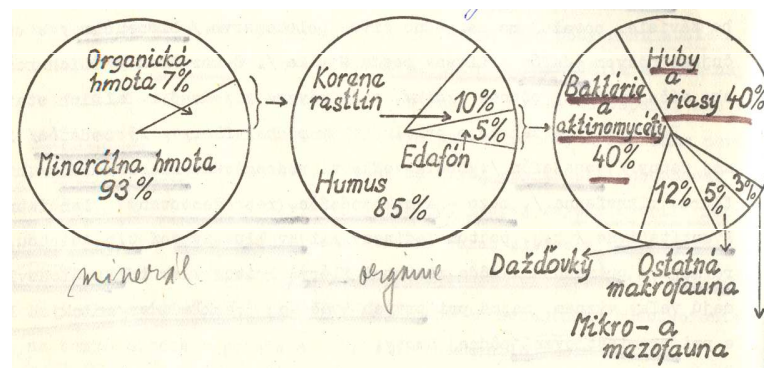 Organická
hmota 7%
Minerálna hmota
93%
minerál
Korene
rastlín
10%
5%
Edafón
Humus
85%
organic
Huby
a
riasy 40%
Baktérie
a
aktinomycéty
40%
12%
5%
3%
Dažďovky
Ostatná
makrofauna
Mikro- a
mezofauna